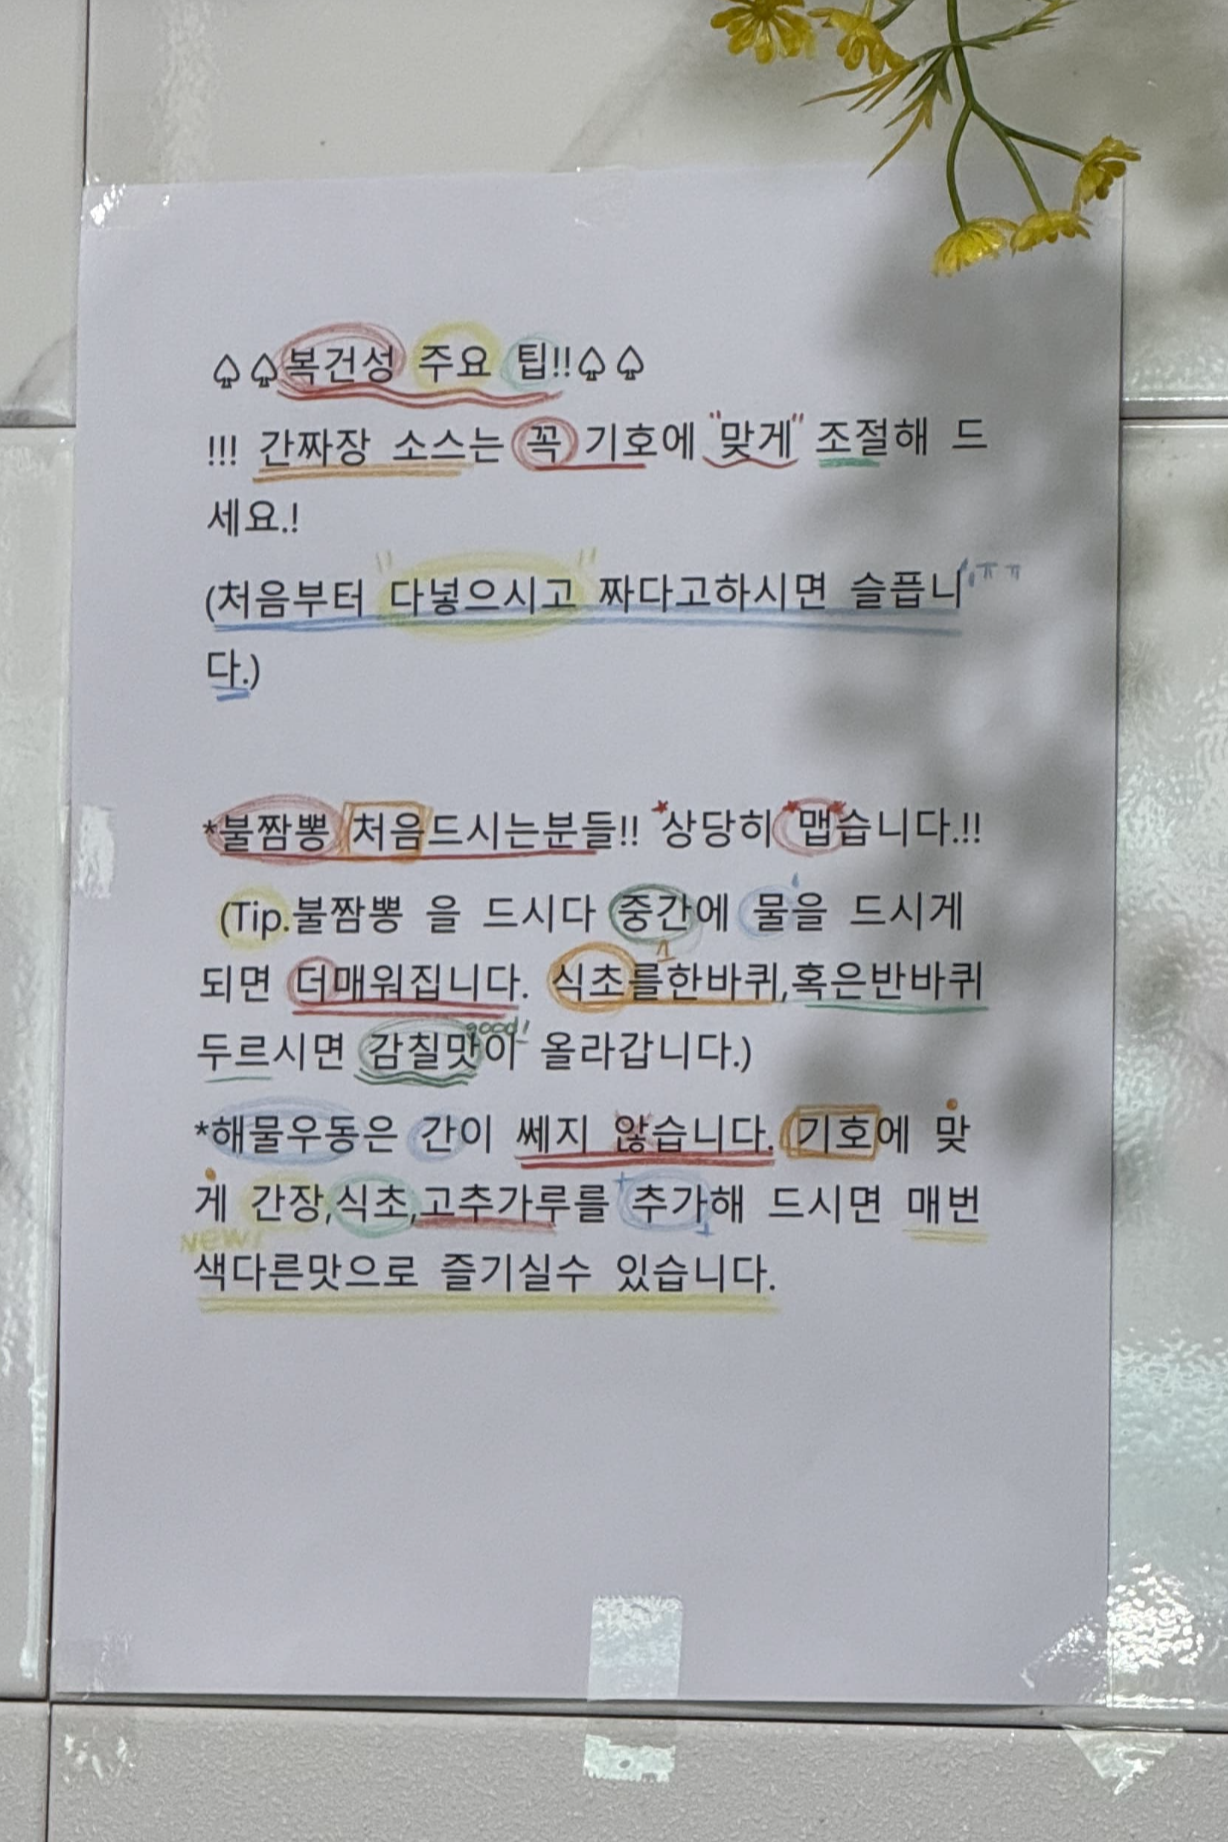 ♤♤복건성 주요 팁!!♤♤
!!! 간짜장 소스는 꼭 기호에 "맞게" 조절해 드
세요.!
(처음부터 "다넣으시고" 짜다고하시면 슬픕니 ㅠㅠ
다.)
*불짬뽕 처음드시는분들!! 상당히 맵습니다.!!
(Tip.불짬뽕 을 드시다 중간에 물을 드시게
되면 더매워집니다. 식초를한바퀴,혹은반바퀴
1
good!
두르시면 감칠맛이 올라갑니다.)
*해물우동은 간이 쎄지 않습니다. 기호에 맞
게 간장,식초,고추가루를 추가해 드시면 매번
NEW!
색다른맛으로 즐기실수 있습니다.